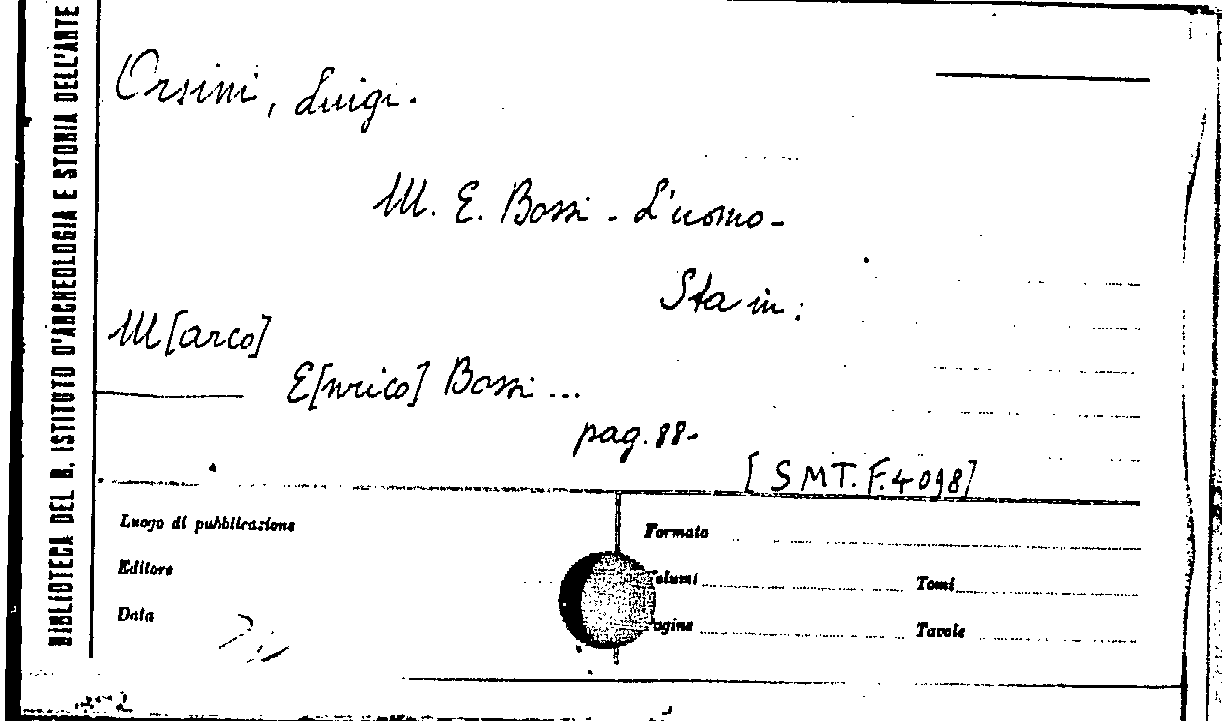 BIBLIOTECA DEL R. ISTITUTO D'ARCHEOLOGIA E STORIA DELL'ARTE
Orsini, Luigi.
M. E. Bossi - L'uomo -
Sta in:
M[arco]
E[nrico] Bossi ...
pag. 88-
[SMT. F. 4098]
Luogo di pubblicazione
Formato
Editore
Volumi
Tomi
Data
Pagine
Tavole